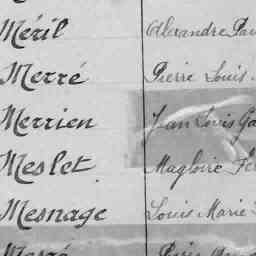 Méril Alexandre
Merré Pierre Louis
Merrien Jean Louis
Meslet Magloire
Mesnage Louis Marie